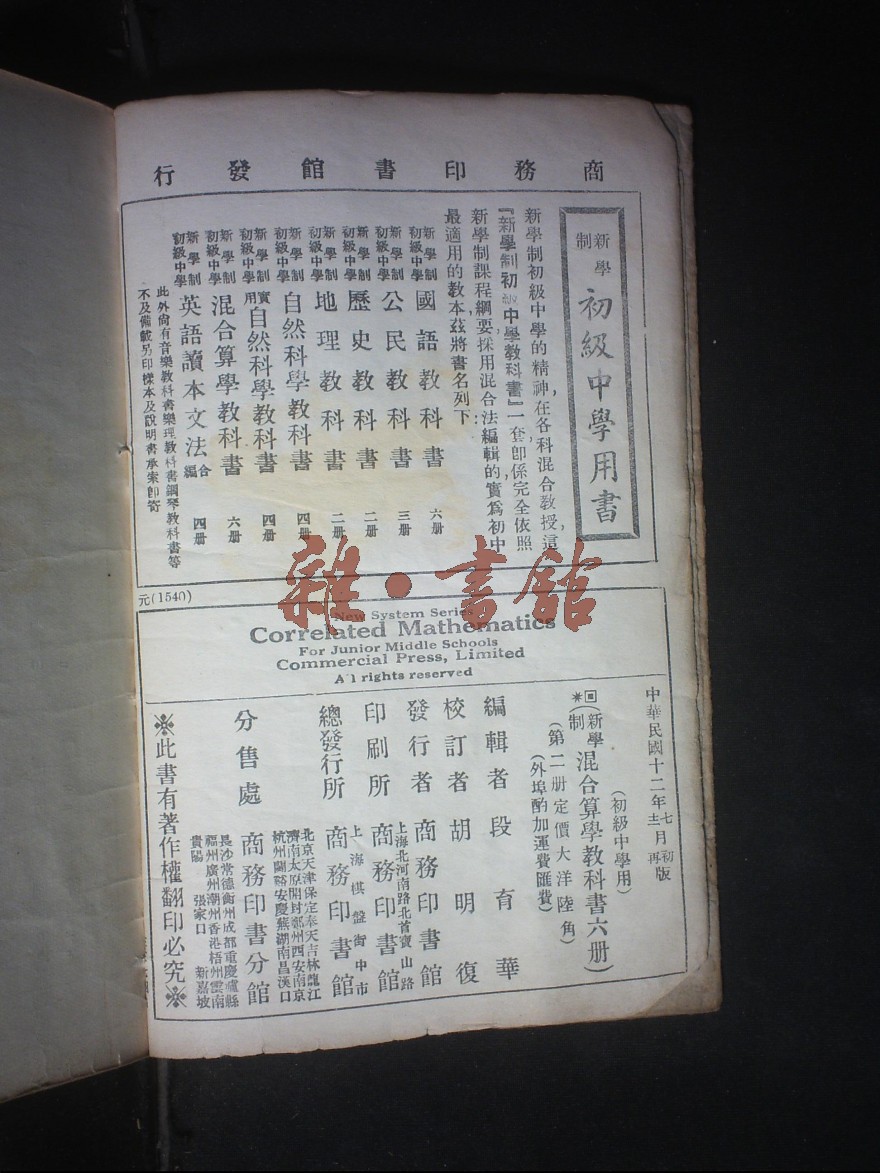 商務印書館發行
新學制
初級中學用書
新學制初級中學的精神,在各科混合教授,這
『新學制初級中學教科書』一套卽係完全依照
新學制課程綱要採用混合法編輯的,實爲初中
最適用的教本茲將書名列下:
新學制初級中學 國語教科書 六册
新學制初級中學 公民教科書 三册
新學制初級中學 歷史教科書 二册
新學制初級中學 地理教科書 二册
新學制初級中學 自然科學教科書 四册
新學制初級中學 實用自然科學教科書 四册
新學制初級中學 混合算學教科書 六册
新學制初級中學 英語讀本文法合編 四册
此外尙有音樂教科書樂理教科書鋼琴教科書等
不及備載另印樣本及說明書承索卽寄
元(1540)
雜·書館
New System Series
Correlated Mathematics
For Junior Middle Schools
Commercial Press, Limited
All rights reserved
中華民國十二年七月初版
再
(初級中學用)
(新學制混合算學教科書六册)
(第二册定價大洋陸角)
(外埠酌加運費匯費)
編輯者 段育華
校訂者 胡明復
發行者 商務印書館
上海北河南路北首寶山路
印刷所 商務印書館
上海棋盤街中市
總發行所 商務印書館
北京天津保定奉天吉林龍江
濟南太原開封鄭州西安南京
杭州蘭谿安慶蕪湖南昌漢口
分售處 商務印書分館
長沙常德衡州成都重慶瀘縣
福州廣州潮州香港梧州雲南
貴陽 張家口 新嘉坡
※此書有著作權翻印必究※